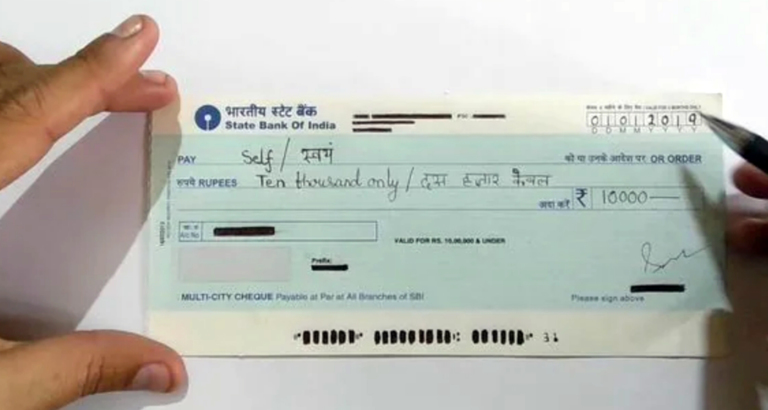 भारतीय स्टेट बैंक
State Bank Of India
01012019
D D M M Y Y Y Y
PAY Self / स्वयं को या उनके आदेश पर OR ORDER
रुपये RUPEES Ten thousand only / दस हजार केवल
अदा करें ₹ 10000—
VALID FOR RS. 10,00,000 & UNDER
Prefix:
MULTI-CITY CHEQUE Payable at Par at All Branches of SBI
Please sign above
31